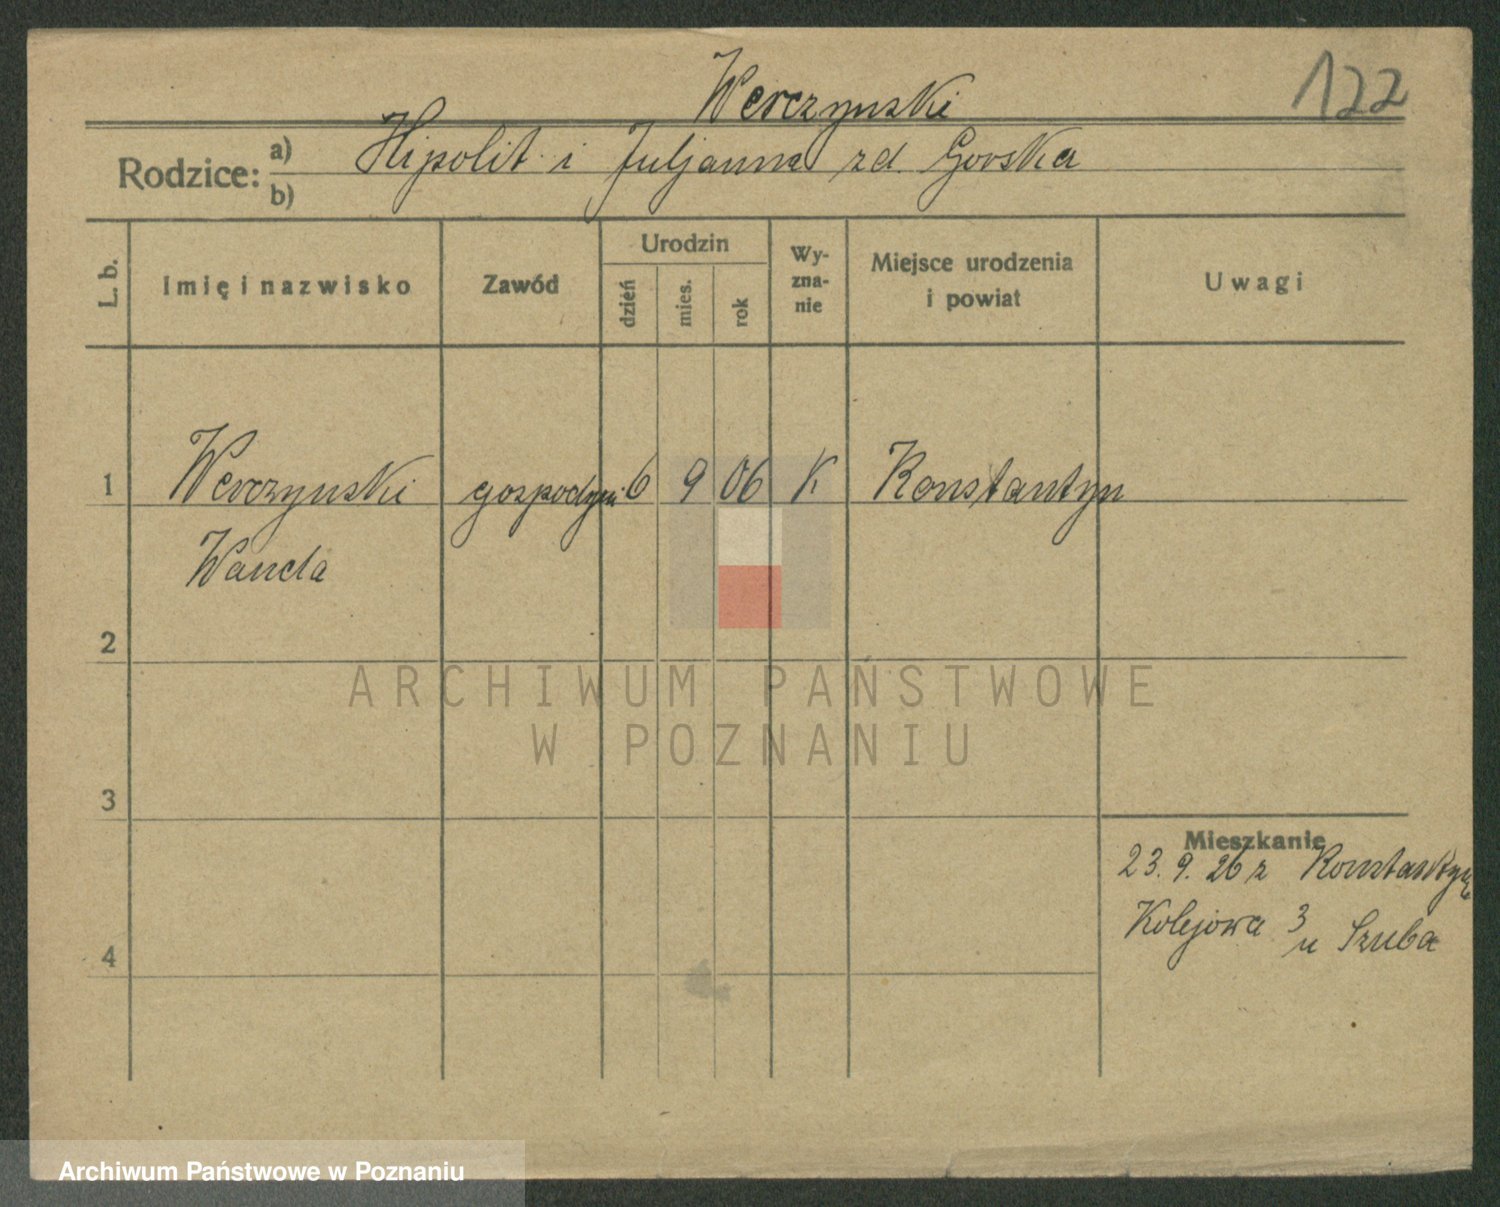 Werczynski
122
Rodzice: a) Hipolit i Juljanna zd. Gorska
b)
L. b.
Imię i nazwisko
Zawód
Urodzin
dzień
mies.
rok
Wy-
zna-
nie
Miejsce urodzenia
i powiat
Uwagi
1 Werczynski gospodyni 6 9 06 K Konstantyn
Wanda
2
ARCHIWUM PAŃSTWOWE
W POZNANIU
3
Mieszkanie
23. 9. 26 z Konstantyn
Kolejowa 3
u Szuba
4
Archiwum Państwowe w Poznaniu